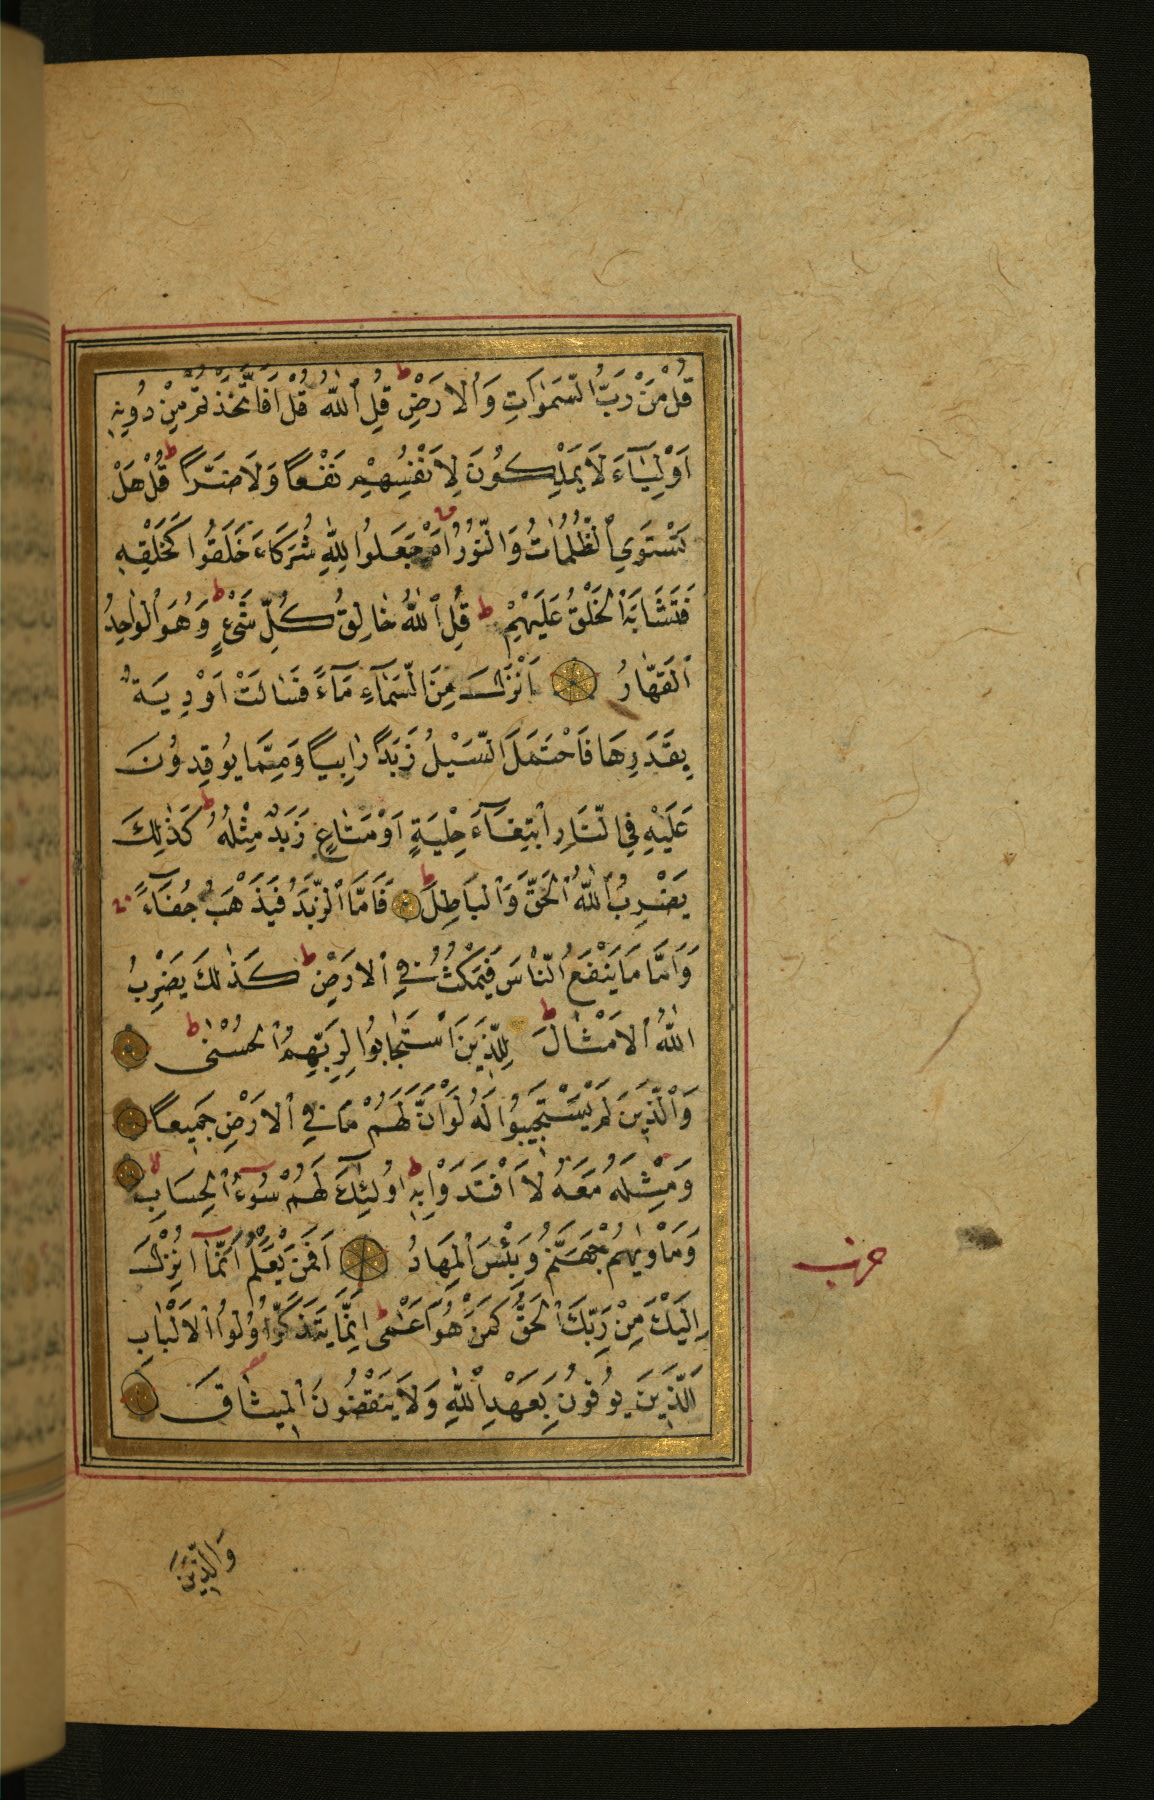 قُلْ مَنْ رَبُّ السَّمٰوَاتِ وَالْاَرْضِ ط قُلِ اللّٰهُ قُلْ اَفَاتَّخَذْتُمْ مِنْ دُونِهِ
اَوْلِيَاءَ لَا يَمْلِكُونَ لِاَنْفُسِهِمْ نَفْعًا وَلَا ضَرًّا ط قُلْ هَلْ
تَسْتَوِي الظُّلُمَاتُ وَالنُّورُ اَمْ جَعَلُوا لِلّٰهِ شُرَكَاءَ خَلَقُوا كَخَلْقِهِ
فَتَشَابَهَ الْخَلْقُ عَلَيْهِمْ ط قُلِ اللّٰهُ خَالِقُ كُلِّ شَيْءٍ ط وَهُوَ الْوَاحِدُ
الْقَهَّارُ اَنْزَلَ مِنَ السَّمَآءِ مَآءً فَسَالَتْ اَوْدِيَةٌ
بِقَدَرِهَا فَاحْتَمَلَ السَّيْلُ زَبَدًا رَابِيًا وَمِمَّا يُوقِدُونَ
عَلَيْهِ فِي النَّارِ ابْتِغَآءَ حِلْيَةٍ اَوْ مَتَاعٍ زَبَدٌ مِثْلُهُ ط كَذٰلِكَ
يَضْرِبُ اللّٰهُ الْحَقَّ وَالْبَاطِلَ ط فَاَمَّا الزَّبَدُ فَيَذْهَبُ جُفَآءً
وَاَمَّا مَا يَنْفَعُ النَّاسَ فَيَمْكُثُ فِي الْاَرْضِ ط كَذٰلِكَ يَضْرِبُ
اللّٰهُ الْاَمْثَالَ ط لِلَّذِينَ اسْتَجَابُوا لِرَبِّهِمُ الْحُسْنٰى ط
وَالَّذِينَ لَمْ يَسْتَجِيبُوا لَهُ لَوْ اَنَّ لَهُمْ مَا فِي الْاَرْضِ جَمِيعًا
وَمِثْلَهُ مَعَهُ لَافْتَدَوْا بِهِ ط اُولٰئِكَ لَهُمْ سُوءُ الْحِسَابِ لا
وَمَاْوٰيهُمْ جَهَنَّمُ وَبِئْسَ الْمِهَادُ اَفَمَنْ يَعْلَمُ اَنَّمَا اُنْزِلَ
اِلَيْكَ مِنْ رَبِّكَ الْحَقُّ كَمَنْ هُوَ اَعْمٰى ط اِنَّمَا يَتَذَكَّرُ اُولُوا الْاَلْبَابِ
اَلَّذِينَ يُوفُونَ بِعَهْدِ اللّٰهِ وَلَا يَنْقُضُونَ الْمِيثَاقَ
حزب
وَالَّذِينَ